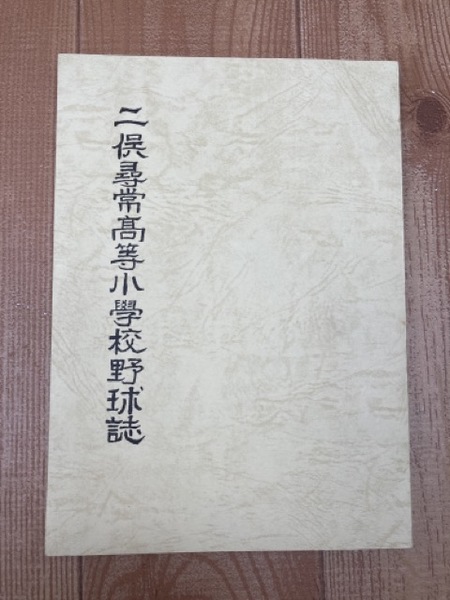 二俣尋常髙等小學校野球誌